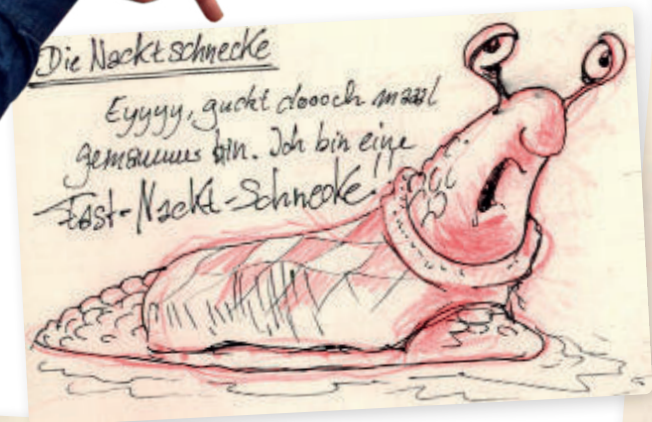 Die Nacktschnecke
Eyyyy, guckt doooch maaal
bin. Ich bin eine
Fast-Nackt-Schnecke.